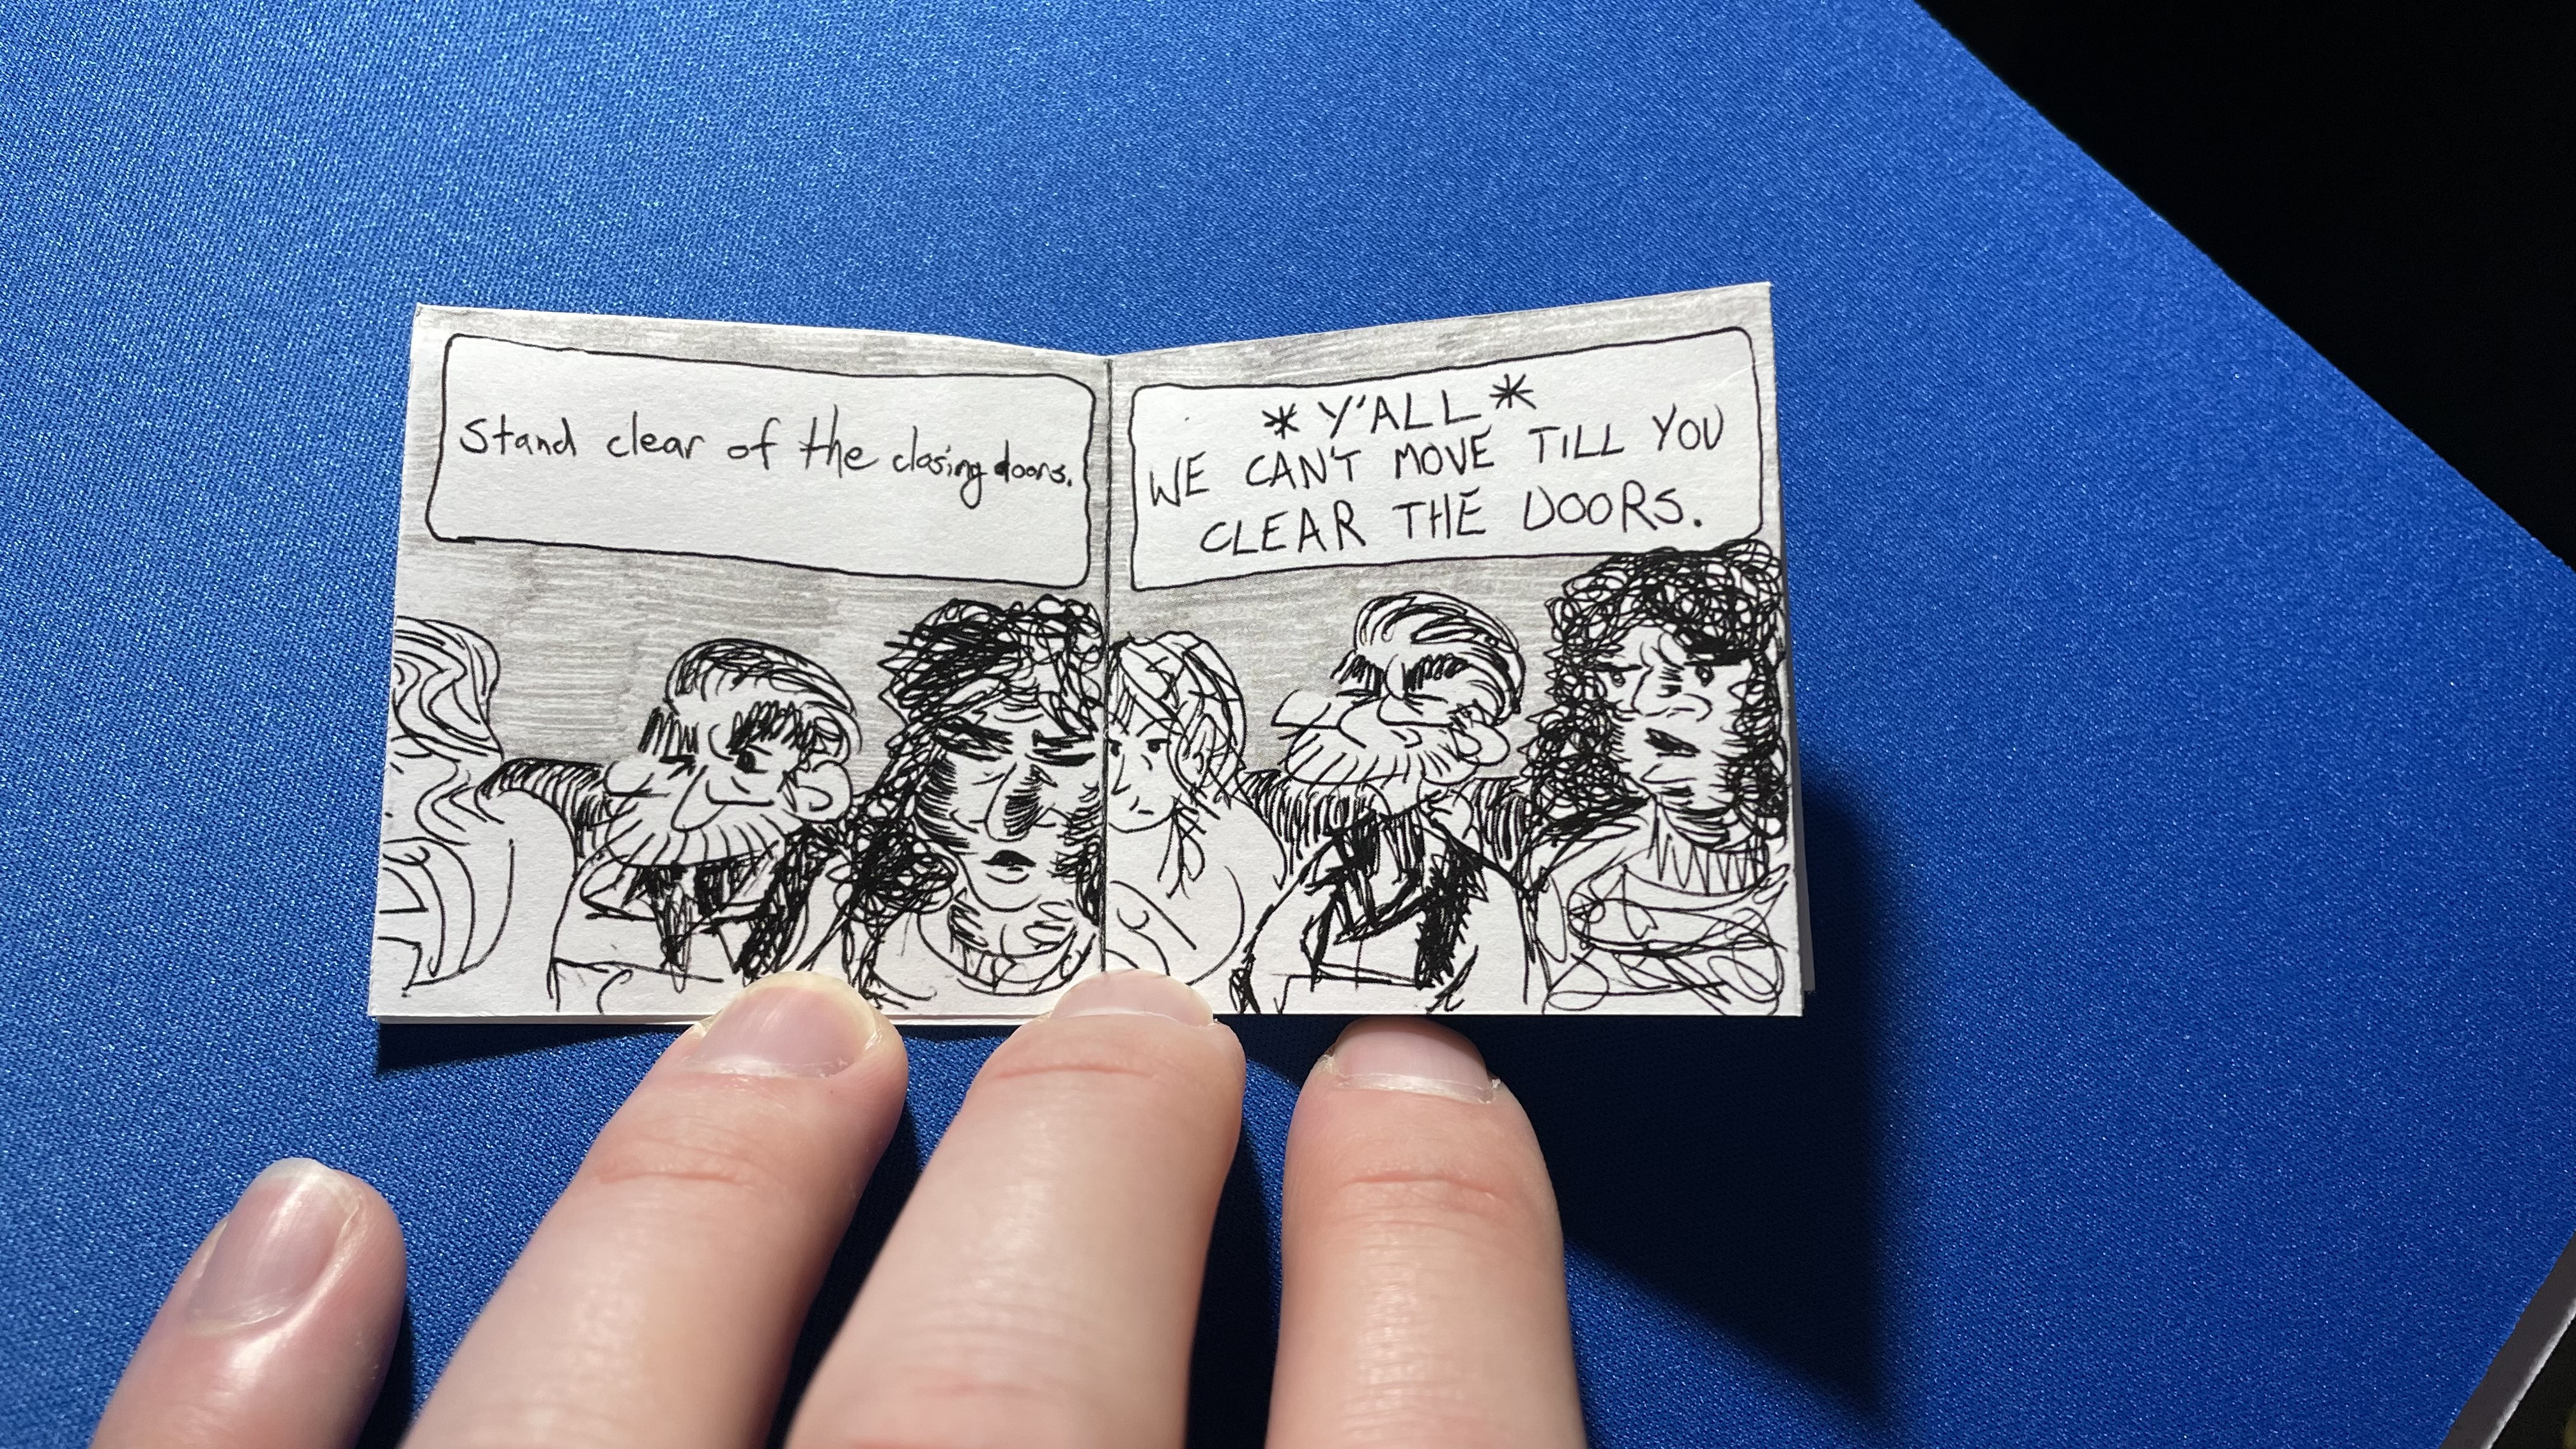 Stand clear of the closing doors.
*Y'ALL*
WE CAN'T MOVE TILL YOU
CLEAR THE DOORS.